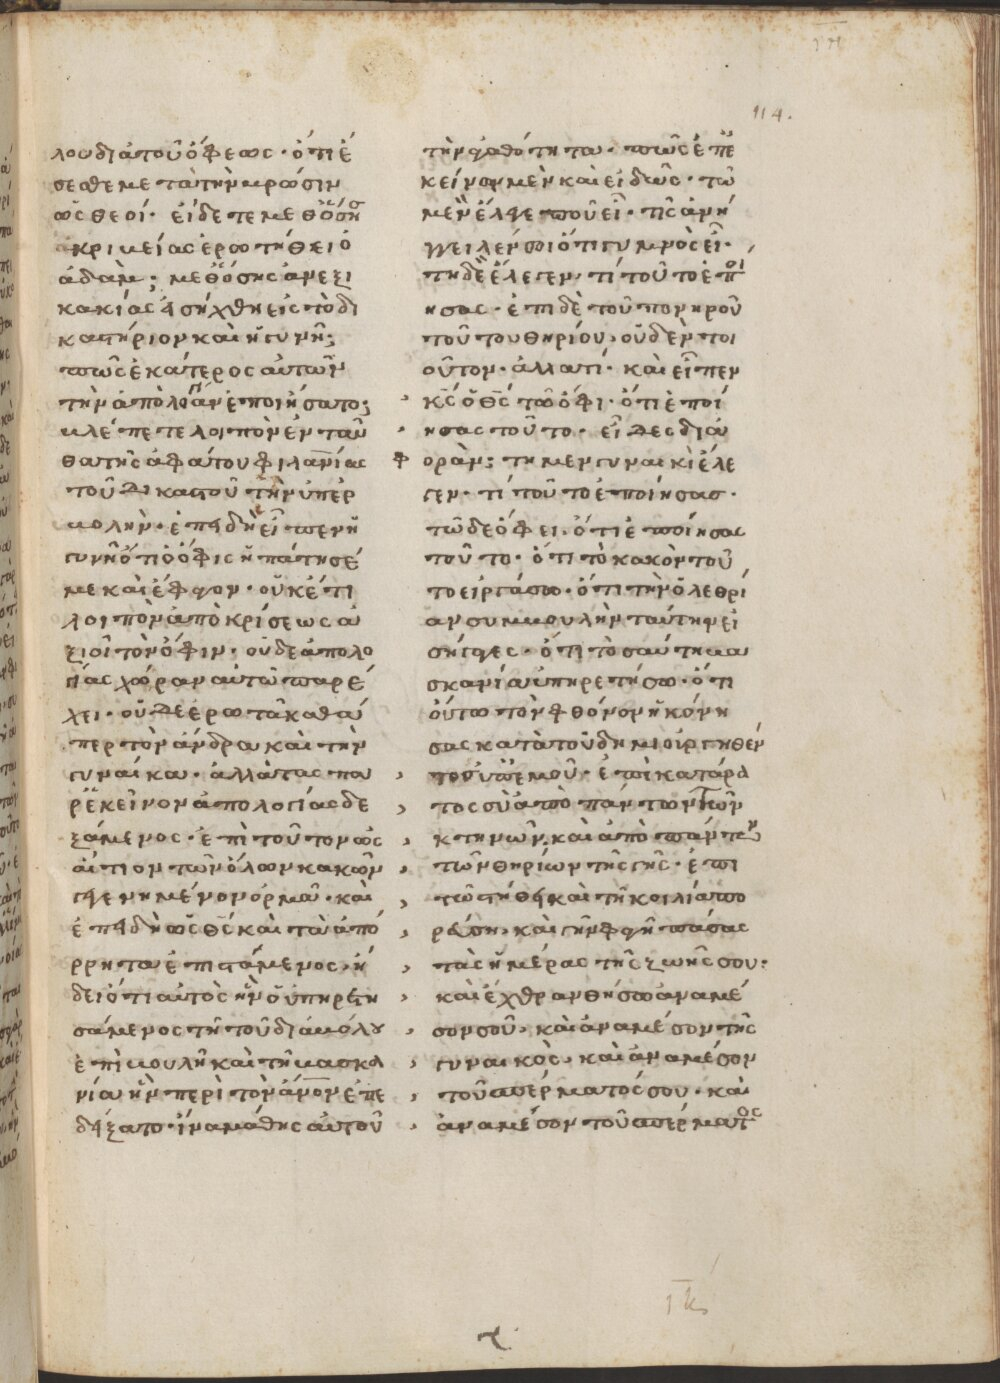 114.
λου διὰ τοῦ ὄφεως · ὅτι ἔ
σεσθε μετὰ τὴν βρῶσιν
ὡς θεοί · εἴδετε μεθ ὅσης
ἀκριβείας ἐρωτήθει ὁ
ἀδάμ; μεθ ὅσης ἀνεξι
κακίας εἰσήχθη εἰς τὸ δι
καστήριον καὶ ἡ γυνή;
πῶς ἑκάτερος αὐτῶν
τὴν ἀπολογίαν ἐποιήσατο;
βλέπετε λοιπὸν ἐνταῦ
θα τῆς ἀφάτου φιλανίας
τοῦ δικαστοῦ τὴν ὑπερ
βολήν · ἐπειδὴ εἶπεν ἡ
γυνὴ ὅτι ὁ ὄφις ἠπάτησέ
με καὶ ἔφαγον · οὐκέτι
λοιπὸν ἀποκρίσεως ἀ
ξιοῖ τὸν ὄφιν · οὐδὲ ἀπολο
γίας χώραν αὐτῶ παρέ
χει · οὐδὲ ἐρωτᾶ καθά
περ τὸν ἄνδρα καὶ τὴν
γυναῖκα · ἀλλὰ τὰς πα
ρ ἐκείνον ἀπολογίας δε
ξάμενος · ἐπὶ τοῦτον ὡς
αἴτιον τῶν ὅλων κακῶν
γεγενημένον ὁρμᾶ · καὶ
ἐπειδὴ ὡς θς καὶ τὰ ἀπό
ρρητα ἐπιστάμενος, ἤ
δει ὅτι αὐτὸς ἦν ὁ ὑπηρετη
σάμενος τῆ τοῦ διαβόλου
ἐπιβουλῆ καὶ τῆ βασκα
νία ἣν περὶ τὸν ἄνον ἐπε
δείξατο · ἵνα μάθης αὐτοῦ
τὴν ἀγαθότητα · πῶς ἐπ ἐ
κείνων μὲν καὶ εἰδὼς · τῶ
μὲν ἔλεγε ποῦ εἶ · τίς ἀνή
γγειλέν σοι ὅτι γυμνὸς εἶ ·
τῆ δὲ ἔλεγεν, τί τοῦτο ἐποί
ησας · ἐπὶ δὲ τοῦ πονηροῦ
τοῦτου θηρίου, οὐδὲν τοι
οῦτον · ἀλλὰ τί · καὶ εἶπεν
κς ὁ θς τῶ ὄφι · ὅτι ἐποί
ησας τοῦτο · εἶδες δια
φορὰν; τῆ μεν γυναικὶ ἔλε
γεν · τί τοῦτο ἐποίησας ·
τῶ δὲ ὄφει · ὅτι ἐποίησας
τοῦτο · ὅτι τὸ κακὸν τοῦ
το εἰργάσω · ὅτι τὴν ὀλεθρί
αν συμβουλὴν ταύτην εἰ
σήγαγες · ὅτι τοσαύτη βα
σκανία ὑπηρετήσω · ὅτι
οὕτω τὸν φθόνον ἠκόνη
σας κατὰ τοῦ δημιουργηθέν
τος ὑπ ἐμοῦ · ἐπικατάρα
τος σὺ ἀπὸ πάντων τῶν
κτηνῶν, καὶ ἀπὸ πάντων
τῶν θηρίων τῆς γῆς · ἐπι
τῶ στήθει καὶ τῆ κοιλία πο
ρεύση, καὶ γῆν φαγῆ πάσας
τὰς ἡμέρας τῆς ζωῆς σου:
καὶ ἔχθραν θήσω ἀναμέ
σον σοῦ, καὶ ἀναμέσον τῆς
γυναικὸς, καὶ ἀναμέσον
τοῦ σπέρματός σου · καὶ
ἀναμέσον τοῦ σπέρματος